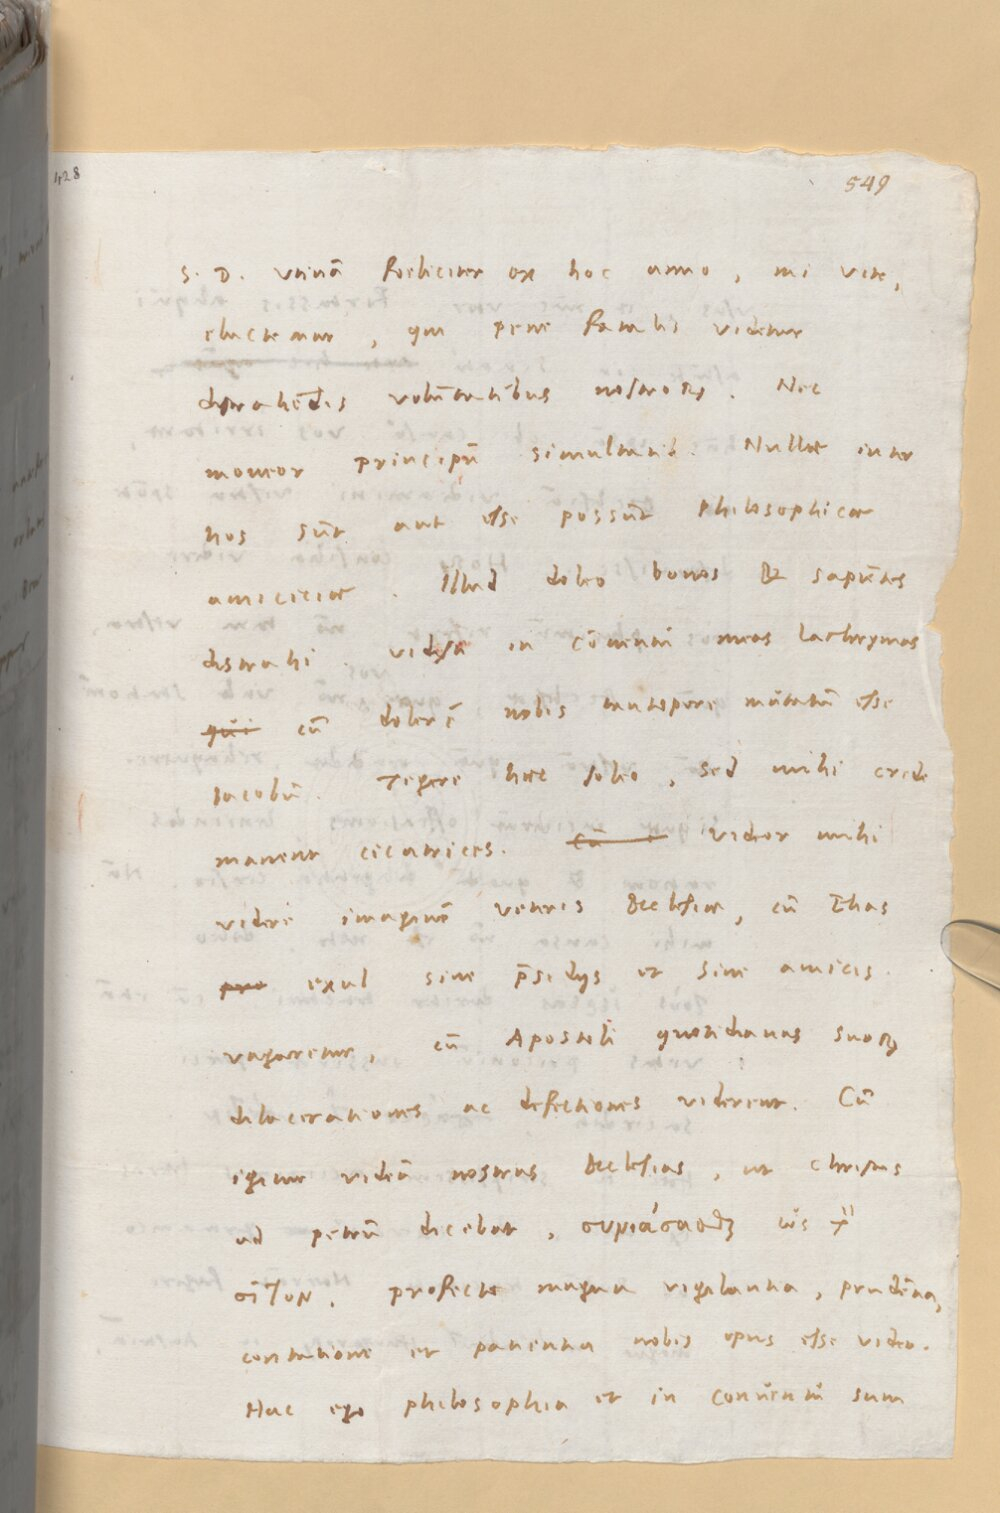 428
549
S. D. Utinā foeliciter ex hoc anno, mi Vite,
eluctemur, qui pene fatalis videtur
distrahēdis volūtatibus nostrorꝝ. Nec
moveor principū simultatib. Nullae inter
nos sūt aut esse possūt philosophicae
amiciciae. Illud doleo bonos & sapiētes
distrahi. in cōventū meas lachrymas
qui cū dolerē nobis tantopere mutatū esse
Iacobū. Tegere haec soleo, sed mihi crede
manent cicatrices. Cū videor mihi
videre imaginē veteris Ecclesiae, cū Elias
pro exul sine p̄sidijs et sine amicis
vagaretur, cū Apostoli quotidianas suorꝝ
dilacerationes ac defectiones viderent. Cū
igitur videā nostras Ecclesias, ut Christus
ad petrū dicebat, συνιάσασθαι ὡς τ
σῖτον. profecto magna vigilantia, prudētia,
contatione et patientia nobis opus esse video.
Hac ego philosophia et in conventū sum